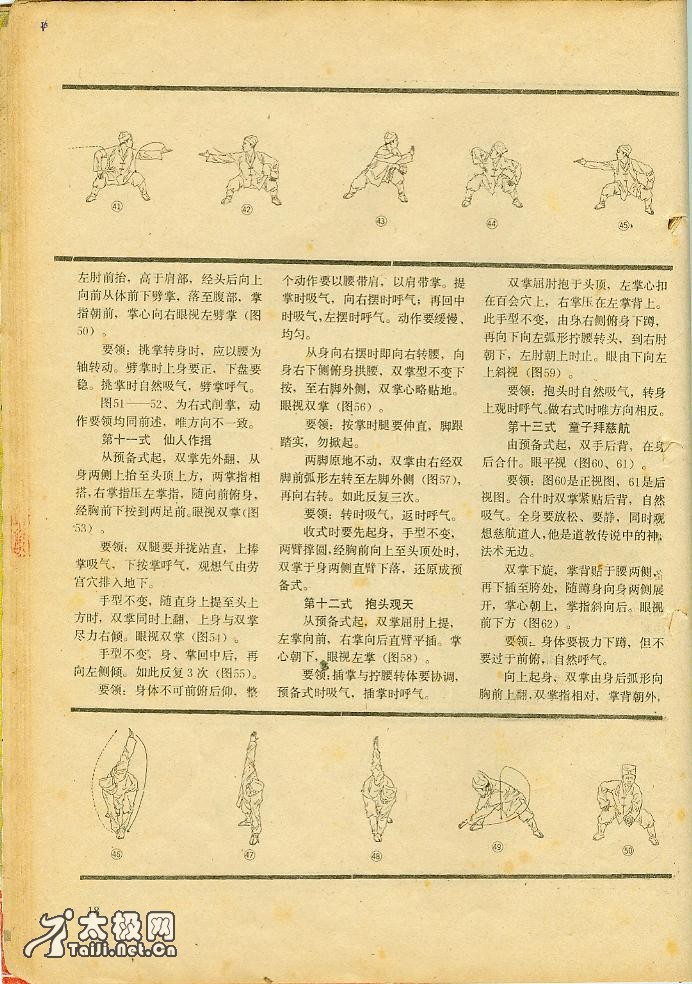 ㊶
㊷
㊸
㊹
㊺
左肘前抬，高于肩部，经头后向上
向前从体前下劈掌，落至腹部，掌
指朝前，掌心向右眼视左劈掌（图
50）。
要领：挑掌转身时，应以腰为
轴转动。劈掌时上身要正，下盘要
稳。挑掌时自然吸气，劈掌呼气。
图51——52、为右式削掌，动
作要领均同前述，唯方向不一致。
第十一式　仙人作揖
从预备式起，双掌先外翻，从
身两侧上抬至头顶上方，两掌指相
搭，右掌指压左掌指，随向前俯身，
经胸前下按到两足前。眼视双掌（图
53）。
要领：双腿要并拢站直，上捧
掌吸气，下按掌呼气，观想气由劳
宫穴排入地下。
手型不变，随直身上提至头上
方时，双掌同时上翻，上身与双掌
尽力右倾。眼视双掌（图54）。
手型不变，身、掌回中后，再
向左侧倾。如此反复3次（图55）。
要领：身体不可前俯后仰，整
个动作要以腰带肩，以肩带掌。提
掌时吸气，向右摆时呼气；再回中
时吸气，左摆时呼气。动作要缓慢、
均匀。
从身向右摆时即向右转腰，向
身右下侧俯身拱腰，双掌型不变下
按，至右脚外侧，双掌心略贴地。
眼视双掌（图56）。
要领：按掌时腿要伸直，脚跟
踏实，勿掀起。
两脚原地不动，双掌由右经双
脚前弧形左转至左脚外侧（图57），
再向右转。如此反复三次。
要领：转时吸气，返时呼气。
收式时要先起身，手型不变，
两臂撑圆，经胸前向上至头顶处时，
双掌于身两侧直臂下落，还原成预
备式。
第十二式　抱头观天
从预备式起，双掌屈肘上提，
左掌向前，右掌向后直臂平插。掌
心朝下，眼视左掌（图58）。
要领：插掌与拧腰转体要协调，
预备式时吸气，插掌时呼气。
双掌屈肘抱于头顶，左掌心扣
在百会穴上，右掌压在左掌背上。
此手型不变，由身右侧俯身下蹲，
再向下向左弧形拧腰转头，到右肘
朝下，左肘朝上时止。眼由下向左
上斜视（图59）。
要领：抱头时自然吸气，转身
上观时呼气。做右式时唯方向相反。
第十三式　童子拜慈航
由预备式起，双手后背，在身
后合什。眼平视（图60、61）。
要领：图60是正视图，61是后
视图。合什时双掌紧贴后背，自然
吸气。全身要放松、要静，同时观
想慈航道人，他是道教传说中的神，
法术无边。
双掌下旋，掌背贴于腰两侧，
再下插至胯处，随蹲身向身两侧展
开，掌心朝上，掌指斜向后。眼视
前下方（图62）。
要领：身体要极力下蹲，但不
要过于前俯，自然呼气。
向上起身，双掌由身后弧形向
胸前上翻，双掌指相对，掌背朝外，
㊻
㊼
㊽
㊾
㊿
18
太极网
Taiji.net.cn